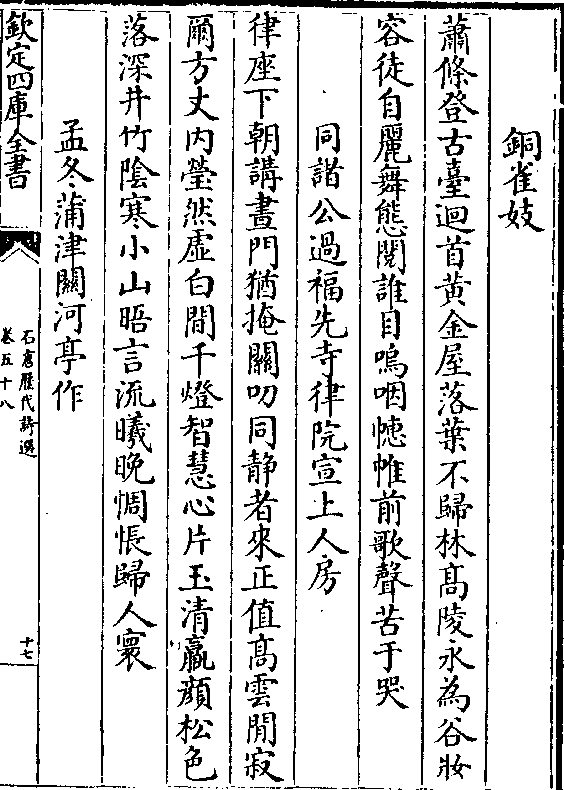 銅雀妓
蕭條登古臺迴首黄金屋落葉不歸林髙陵永為谷妝
容徒自麗舞態閱誰目嗚咽㥽帷前歌聲苦于哭
同諸公過福先寺律院宣上人房
律座下朝講晝門猶掩關叨同靜者來正值髙雲閒寂
爾方丈内瑩然虛白間千燈智慧心片玉清羸顔松色
落深井竹陰寒小山晤言流曦晚惆悵歸人寰
孟冬蒲津關河亭作
欽定四庫全書
石倉歷代詩選
卷五十八
十七